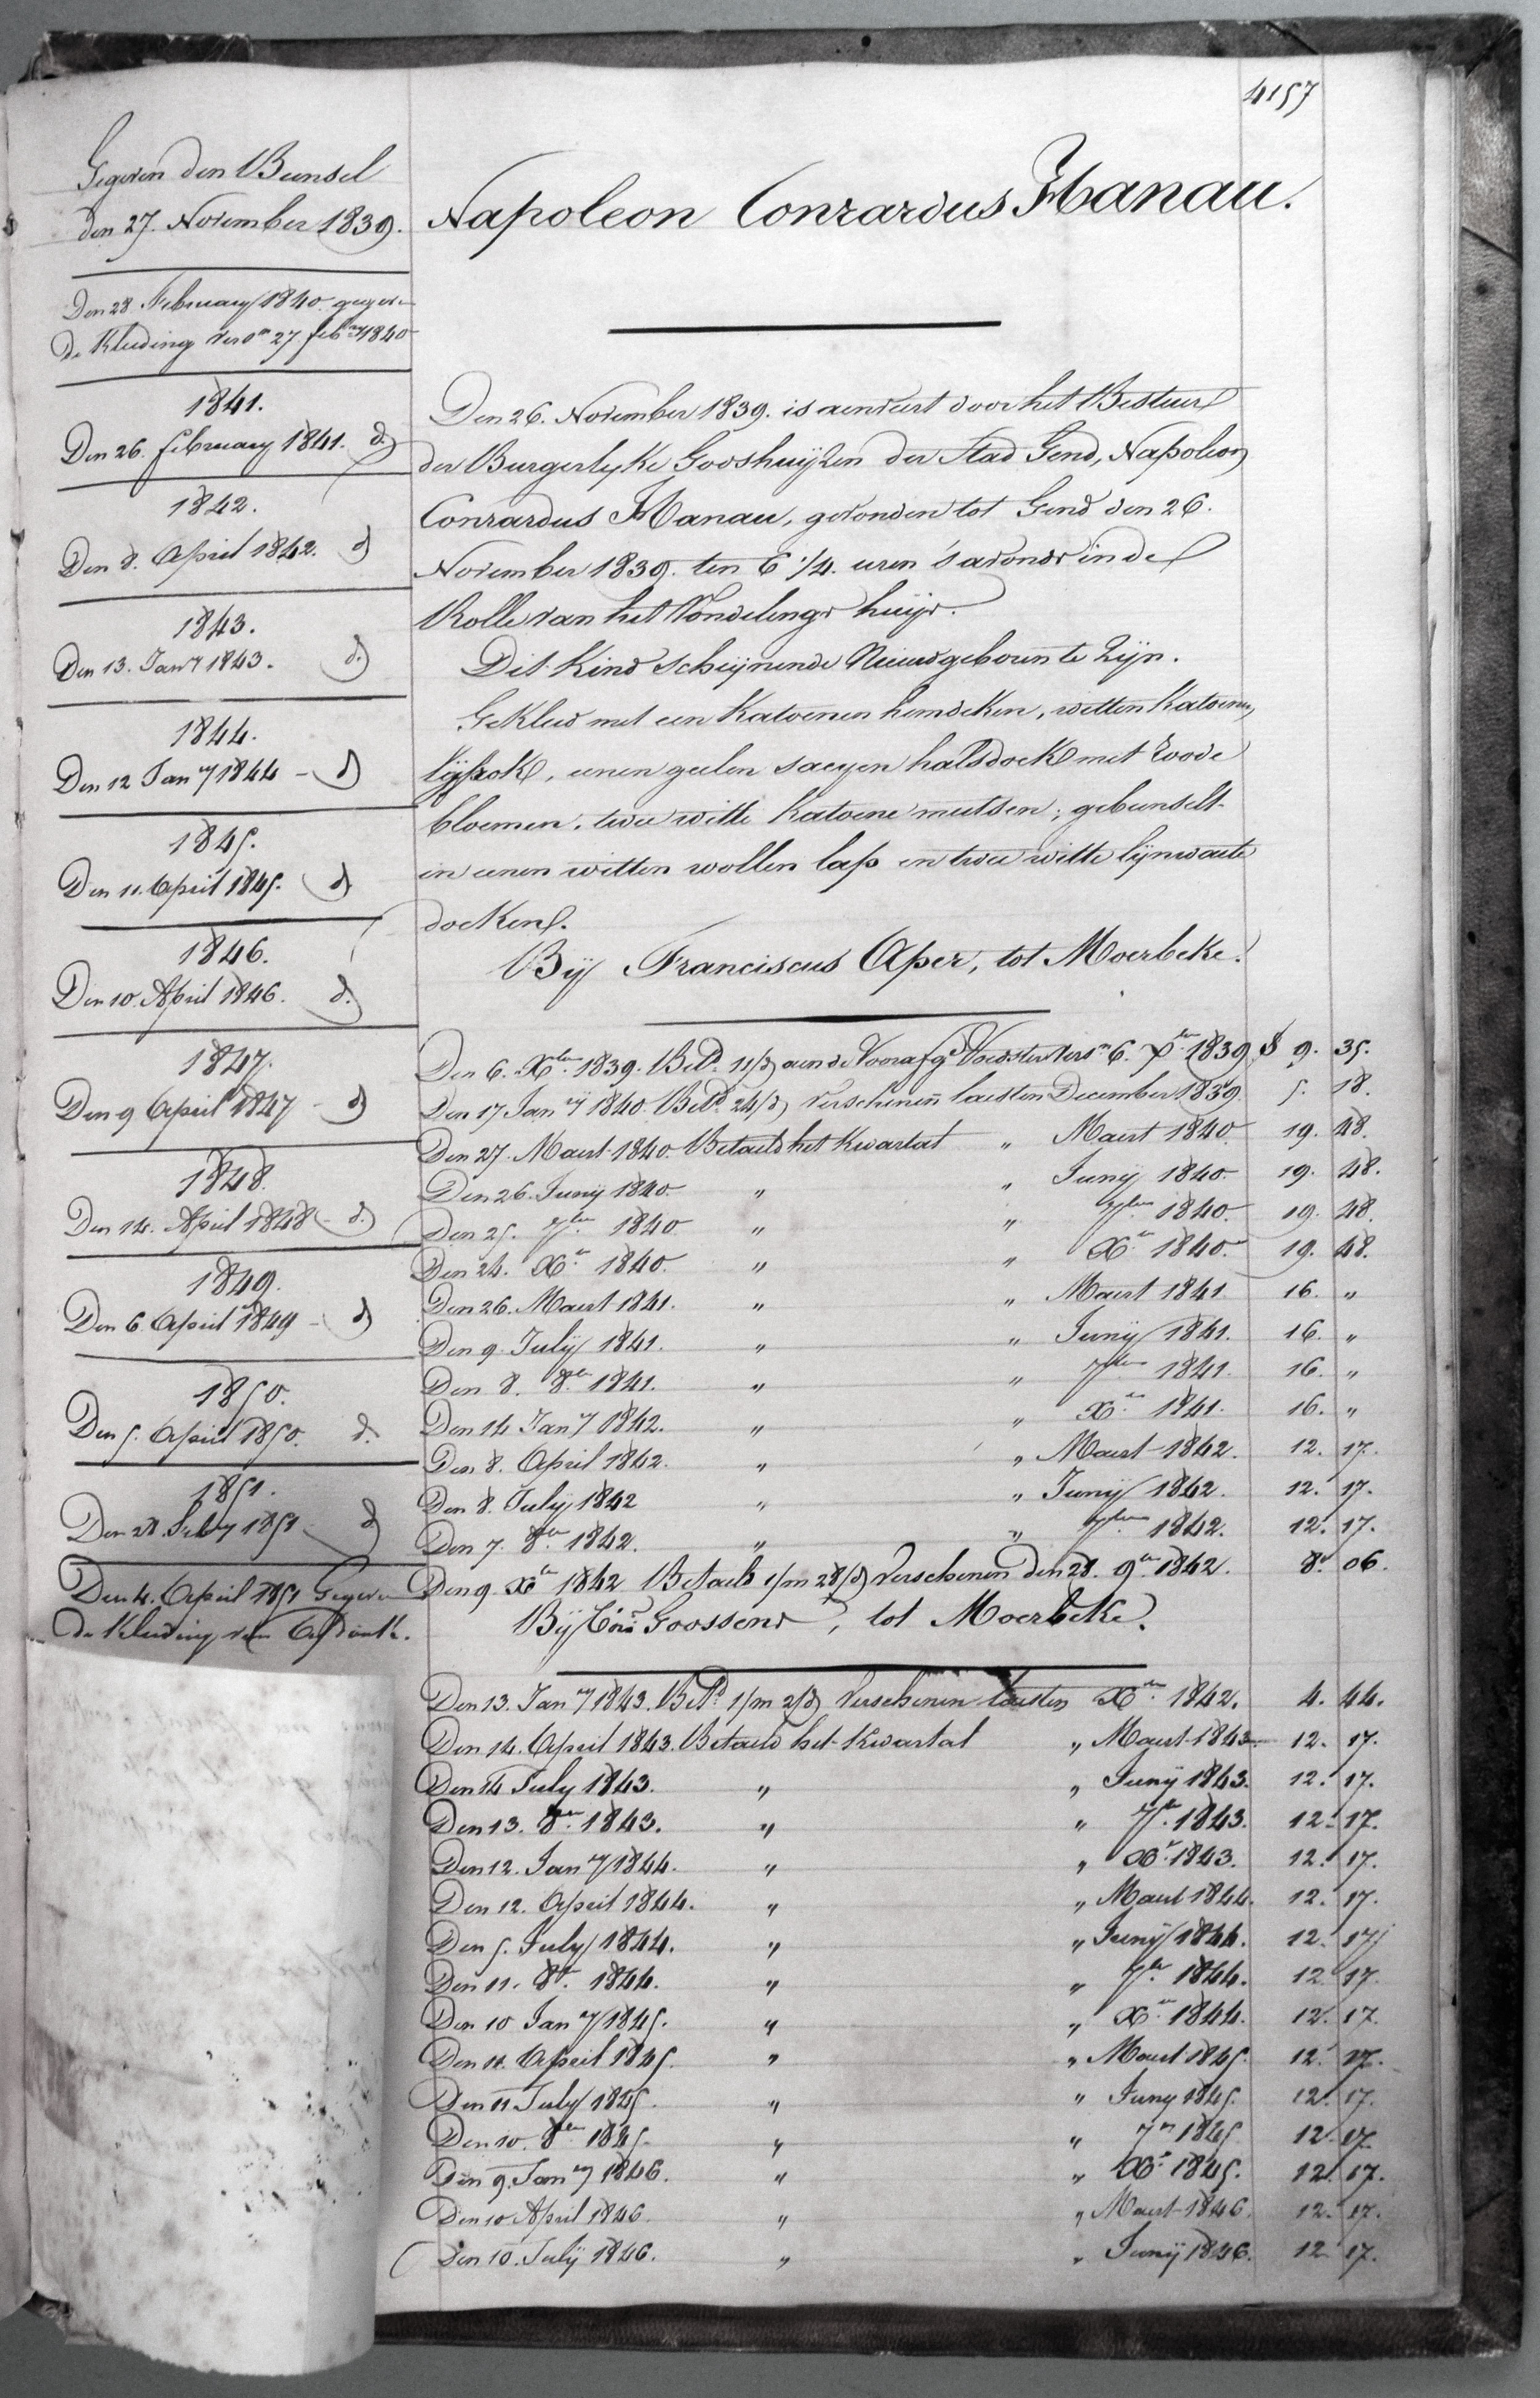 4157
Gegeven den Bunsel
den 27. November 1839.
Den 28 February 1840 gegeven
de Kleeding vers.en 27 feb.ry 1840
1841.
Den 26. february 1841. d.
1842.
Den 8. April 1842. d
1843.
Den 13. Jan.y 1843. d.
1844.
Den 12 Jan.y 1844 - d
1845.
Den 11. April 1845. d
1846.
Den 10. April 1846. d.
1847.
Den 9 April 1847 - d
1848.
Den 14. April 1848 - d.
1849.
Den 6. April 1849 - d
1850.
Den 5. April 1850. d.
1851.
Den 28. Feb.y 1851 - d
Den 4. April 1851 Gegeven
de Kleeding van
Napoleon Conrardus Hanau.
Den 26. November 1839. is aenveert door het Bestuer
der Burgerlyke Godshuyzen der Stad Gend, Napoleon
Conrardus Hanau, gevonden tot Gend den 26.
November 1839. ten 6 1/4. uren 's avonds in de
Rolle van het Vondelings huys.
Dit Kind schijnende Nieuwgeboren te Zijn.
Gekleed met een Katoenen hemdeken, witten Katoenen
lijfrok, eenen geelen saeyen halsdoek met roode
bloemen, twee witte Katoene mutsen; gebunselt
in eenen witten wollen lap en twee witte lijnwaete
doeken.
Bij Franciscus Aper, tot Moerbeke.
Den 6. Xber 1839. Bet.d 11/d aen de Voorafg.e Voedster vers.n 6. Xber 1839 9. 35.
Den 17 Jan.y 1840. Bet.d 24/d Verschenen laesten December 1839. 5. 18.
Den 27. Maert 1840. Betaeld het Kwartaal " Maert 1840. 19. 48.
Den 26. Junij 1840. " " Junij 1840. 19. 48.
Den 25. 7ber 1840 " " 7ber 1840. 19. 48.
Den 24. Xr 1840. " " Xr 1840. 19. 48.
Den 26. Maert 1841. " " Maert 1841 16. "
Den 9. Julij 1841. " " Junij 1841. 16. "
Den 8. 8ber 1841. " " 7ber 1841. 16. "
Den 14 Jan.y 1842. " " Xr 1841. 16. "
Den 8. April 1842. " " Maert 1842. 12. 17.
Den 8. Julij 1842 " " Junij 1842. 12. 17.
Den 7. 8ber 1842. " " 7ber 1842. 12. 17.
Den 9. Xber 1842 Betaeld 1/m 28/d Verschenen den 28. 9ber 1842. 8. 06.
Bij Goossens, tot Moerbeke.
Den 13. Jan.y 1843. Bet.d 1/m 2/d Verschenen laesten Xber 1842. 4. 44.
Den 14. April 1843. Betaeld het Kwartal " Maert 1843. 12. 17.
Den 14 July 1843. " " Junij 1843. 12. 17.
Den 13. 8ber 1843. " " 7ber 1843. 12. 17.
Den 12. Jan.y 1844. " " Xr 1843. 12. 17.
Den 12. April 1844. " " Maert 1844. 12. 17.
Den 5. July 1844. " " Junij 1844. 12. 17
Den 11. 8br 1844. " " 7ber 1844. 12. 17.
Den 10 Jan.y 1845. " " Xber 1844. 12. 17.
Den 11. April 1845. " " Maert 1845. 12. 17.
Den 11 July 1845. " " Juny 1845. 12. 17.
Den 10. 8ber 1845. " " 7br 1845 12. 17.
Den 9. Jan.y 1846. " " Xr 1845. 12. 17.
Den 10 April 1846. " " Maert 1846. 12. 17.
Den 10. Julij 1846. " " Junij 1846. 12. 17.